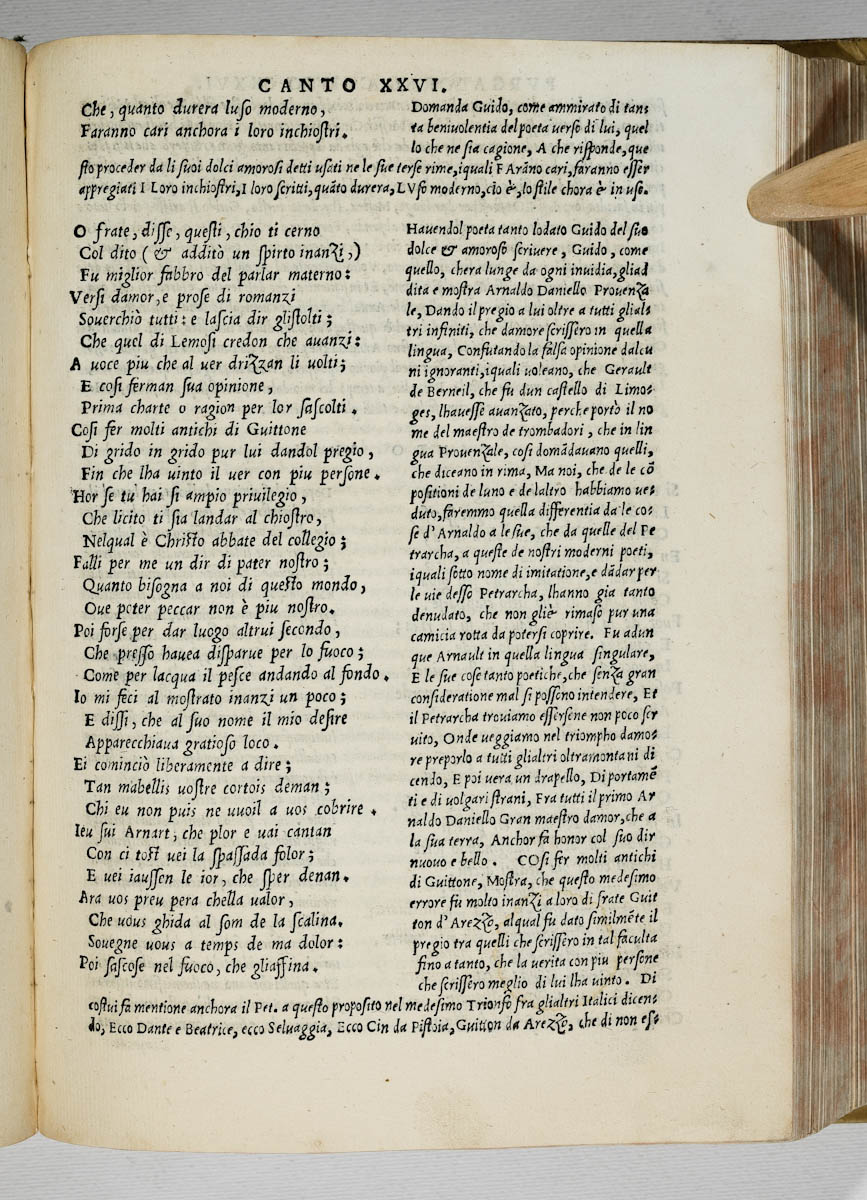 CANTO XXVI.
Che, quanto durera luso moderno,
Faranno cari anchora i loro inchiostri.
Domanda Guido, come ammirato di tan-
ta beniuolentia del poeta uerso di lui, quel
lo che ne sia cagione, A che risponde, que
sto proceder da li suoi dolci amorosi detti usati ne le sue terse rime, iquali FArãno cari, faranno esser
appregiati I Loro inchiostri, I loro scritti, quãto durera, LVso moderno, cio è, lo stile chora è in uso.
O frate, disse, questi, chio ti cerno
Col dito (& additò un spirto inanzi,)
Fu miglior fabbro del parlar materno:
Versi damor, e prose di romanzi
Souerchiò tutti: e lascia dir glistolti;
Che quel di Lemosi credon che auanzi:
A uoce piu che al uer drizzan li uolti;
E cosi ferman sua opinione,
Prima charte o ragion per lor sascolti.
Cosi fer molti antichi di Guittone
Di grido in grido pur lui dandol pregio,
Fin che lha uinto il uer con piu persone.
Hor se tu hai si ampio priuilegio,
Che licito ti sia landar al chiostro,
Nelqual è Christo abbate del collegio;
Falli per me un dir di pater nostro;
Quanto bisogna a noi di questo mondo,
Oue poter peccar non è piu nostro.
Poi forse per dar luogo altrui secondo,
Che presso hauea disparue per lo fuoco;
Come per lacqua il pesce andando al fondo.
Io mi feci al mostrato inanzi un poco;
E dissi, che al suo nome il mio desire
Apparecchiaua gratioso loco.
Ei cominciò liberamente a dire;
Tan mabellis uostre cortois deman;
Chi eu non puis ne uuoil a uos cobrire.
Ieu sui Arnart, che plor e uai cantan
Con ci tost uei la spassada folor;
E uei iaussen le ior, che sper denan.
Ara uos preu pera chella ualor,
Che uous ghida al som de la scalina.
Souegne uous a temps de ma dolor:
Poi sascose nel fuoco, che gliaffina.
Hauendol poeta tanto lodato Guido del suo
dolce & amoroso scriuere, Guido, come
quello, chera lunge da ogni inuidia, gliad
dita e mostra Arnaldo Daniello Prouenza
le, Dando il pregio a lui oltre a tutti glial-
tri infiniti, che damore scrissero in quella
lingua, Confutando la falsa opinione dalcu
ni ignoranti, iquali uoleano, che Gerault
de Berneil, che fu dun castello di Limo-
ges, lhauesse auanzato, perche portò il no
me del maestro de trombadori, che in lin
gua Prouenzale, cosi domãdauano quelli,
che diceano in rima, Ma noi, che de le cõ
positioni de luno e de laltro habbiamo ue-
duto, faremmo quella differentia da le co-
se d'Arnaldo a le sue, che da quelle del Pe
trarcha, a queste de nostri moderni poeti,
iquali sotto nome di imitatione, e dãdar per
le uie desso Petrarcha, lhanno gia tanto
denudato, che non gliè rimaso pur una
camicia rotta da potersi coprire. Fu adun
que Arnault in quella lingua singulare,
E le sue cose tanto poetiche, che senza gran
consideratione mal si posseno intendere, Et
il Petrarcha trouiamo essersene non poco ser
uito, Onde ueggiamo nel triompho damo-
re preporlo a tutti glialtri oltramontani di
cendo, E poi uera un drapello, Di portamẽ
ti e di uolgari strani, Fra tutti il primo Ar
naldo Daniello Gran maestro damor, che a
la sua terra, Anchor fa honor col suo dir
nuouo e bello. COsi fer molti antichi
di Guittone, Mostra, che questo medesimo
errore fu molto inanzi a loro di frate Guit
ton d'Arezzo, alqual fu dato similmẽte il
pregio tra quelli che scrissero in tal faculta
fino a tanto, che la uerita con piu persone
che scrissero meglio di lui lha uinto. Di
costui fa mentione anchora il Pet. a questo proposito nel medesimo Trionfo fra glialtri Italici dicen-
do, Ecco Dante e Beatrice, ecco Seluaggia, Ecco Cin da Pistoia, Guitton da Arezzo, che di non es-